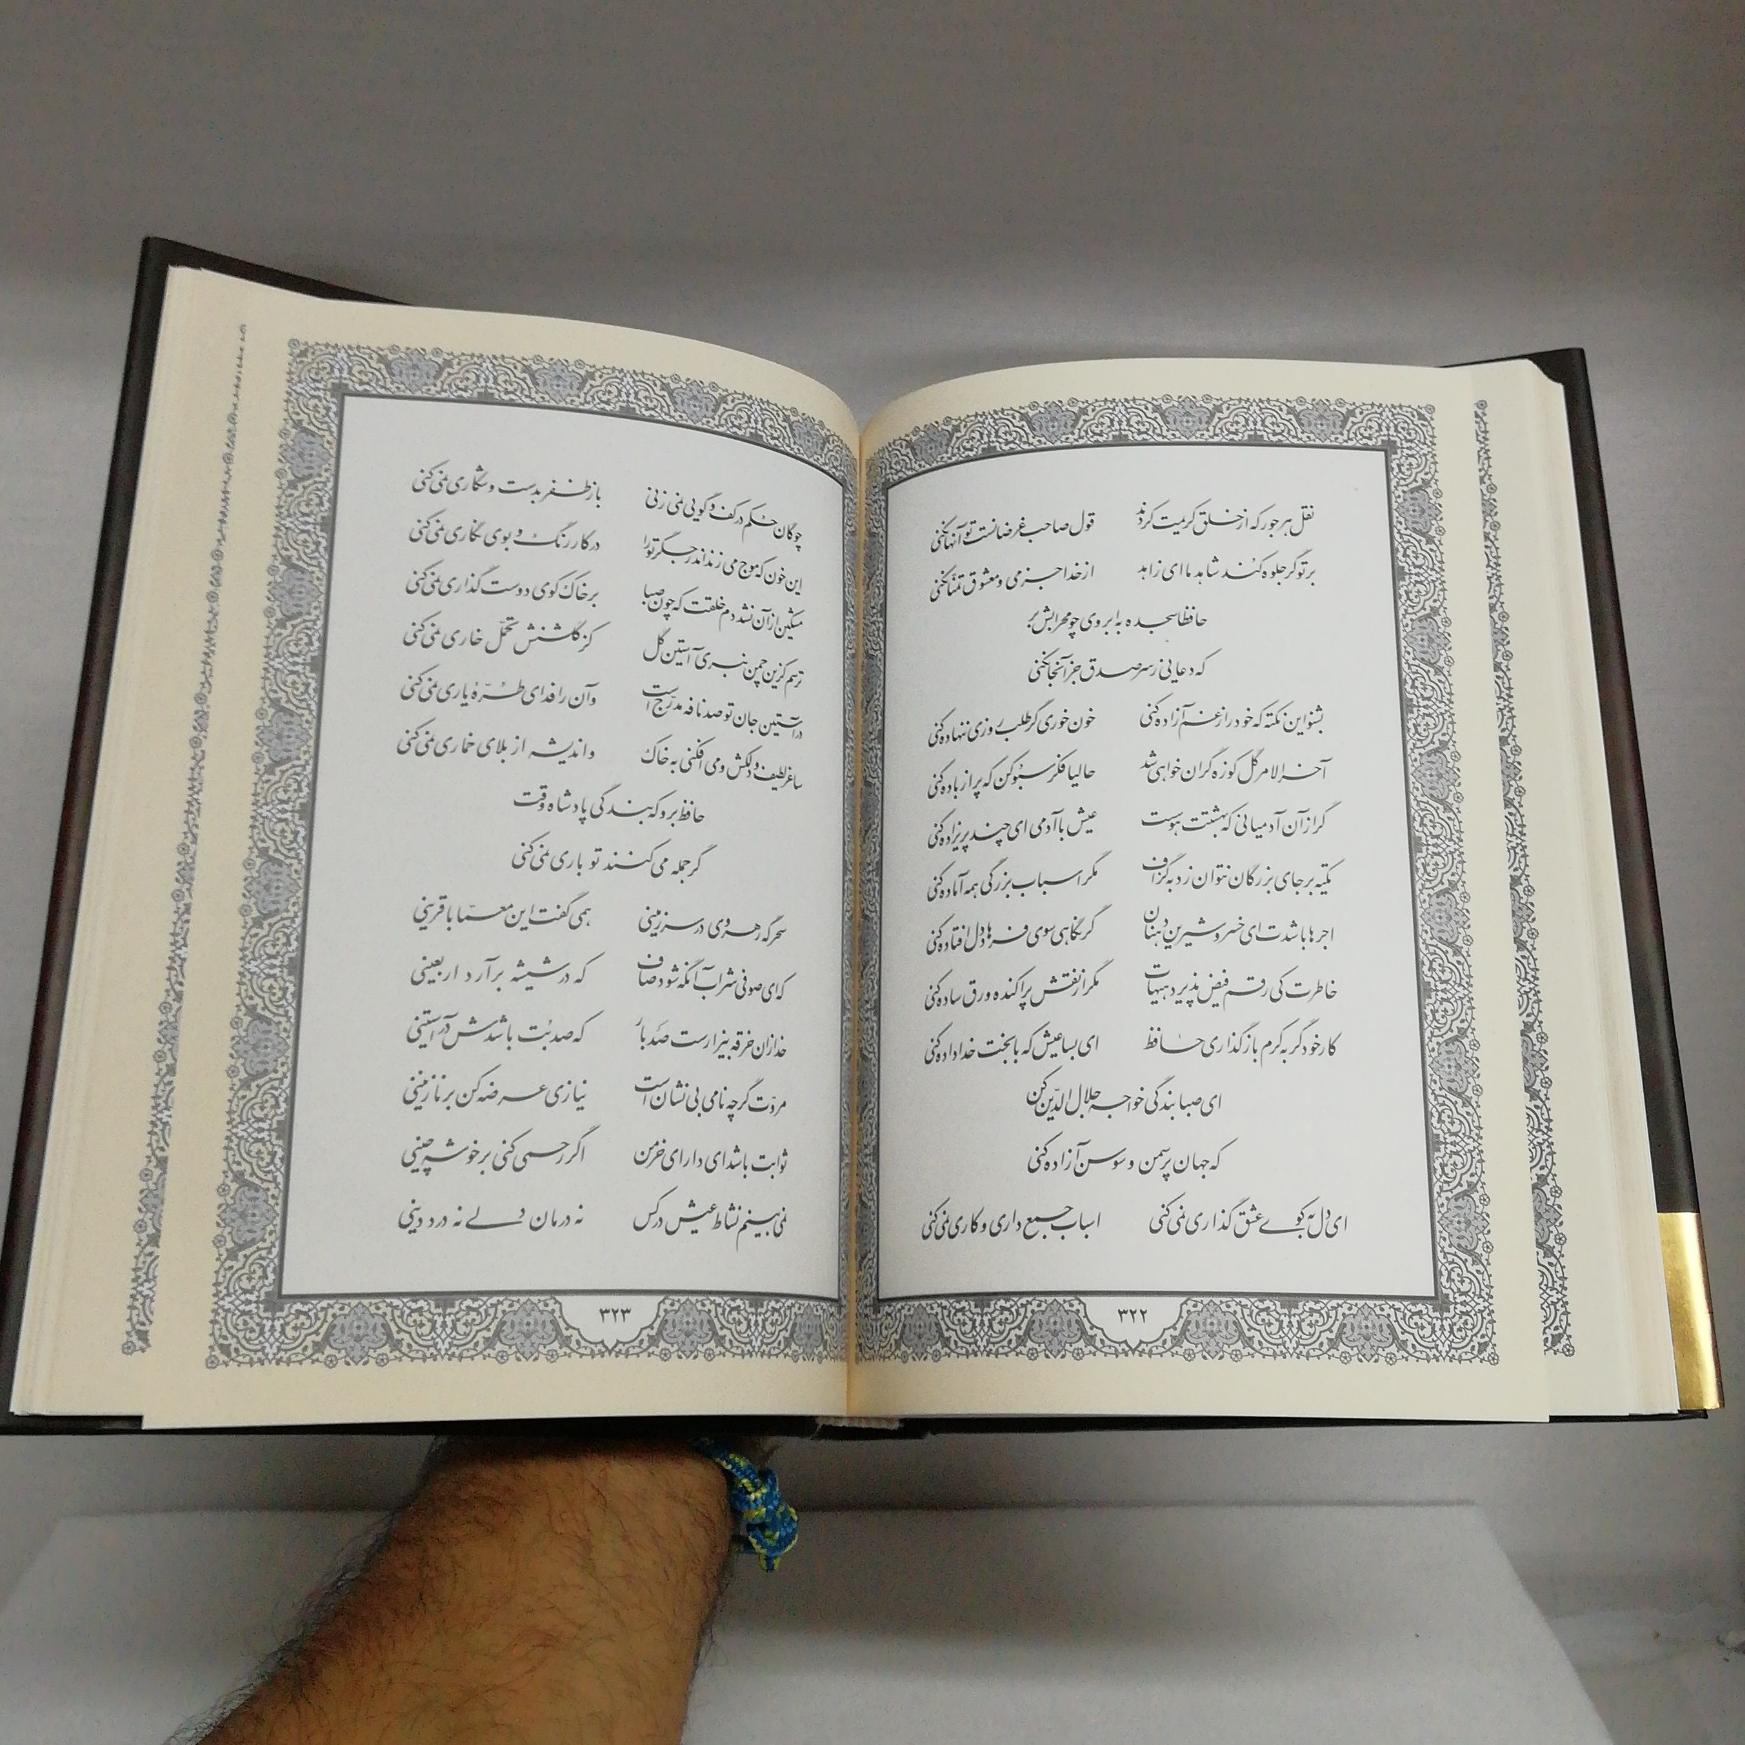 نقل هر جور که از خلق کریمت کردند قول صاحب غرضانست تو آنها نکنی
بر تو گر جلوه کند شاهد ما ای زاهد از خدا جز می و معشوق تمنا نکنی
حافظا سجده به ابروی چو محرابش بر
که دعایی ز سر صدق جز آنجا نکنی
بشنو این نکته که خود را ز غم آزاده کنی خون خوری گر طلب روزی ننهاده کنی
آخرالامر گل کوزه گران خواهی شد حالیا فکر سبو کن که پر از باده کنی
گر از آن آدمیانی که بهشتت هوست عیش با آدمی ای چند پریزاده کنی
تکیه بر جای بزرگان نتوان زد به گزاف مگر اسباب بزرگی همه آماده کنی
اجرها باشدت ای خسرو شیرین دهنان گر نگاهی سوی فرهاد دل افتاده کنی
خاطرت کی رقم فیض پذیرد هیهات مگر از نقش پراکنده ورق ساده کنی
کار خود گر به کرم باز گذاری حافظ ای بسا عیش که با بخت خداداده کنی
ای صبا بندگی خواجه جلال الدین کن
که جهان پر سمن و سوسن آزاده کنی
ای دل به کوی عشق گذاری نمی کنی اسباب جمع داری و کاری نمی کنی
۳۲۲
چوگان حکم در کف و گویی نمی زنی باز ظفر بدست و شکاری نمی کنی
این خون که موج می زند اندر جگر تو را در کار رنگ و بوی نگاری نمی کنی
مشکین از آن نشد دم خلقت که چون صبا بر خاک کوی دوست گذاری نمی کنی
ترسم کزین چمن نبری آستین گل کز گلشنش تحمّل خاری نمی کنی
در آستین جان تو صد نافه مدرّج است وآن را فدای طرّهٔ یاری نمی کنی
ساغر لطیف و دلکش و می افکنی به خاک واندیشه از بلای خماری نمی کنی
حافظ برو که بندگی پادشاه وقت
گر جمله می کنند تو باری نمی کنی
سحرگه رهروی در سرزمینی همی گفت این معمّا با قرینی
که ای صوفی شراب آنگه شود صاف که در شیشه برآرد اربعینی
خدا زان خرقه بیزارست صد بار که صد بت باشدش در آستینی
مروّت گر چه نامی بی نشان است نیازی عرضه کن بر نازنینی
ثوابت باشد ای دارای خرمن اگر رحمی کنی بر خوشه چینی
نمی بینم نشاط عیش در کس نه درمان دلی نه درد دینی
۳۲۳